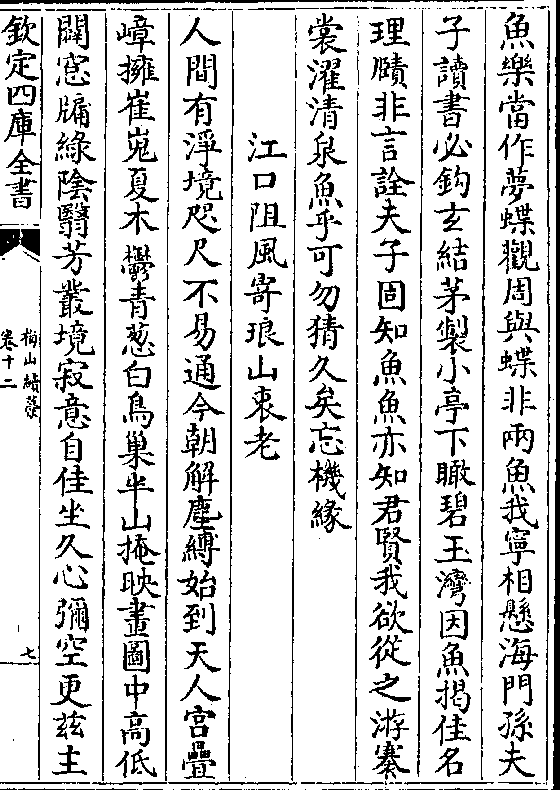 魚樂當作夢蝶觀周與蝶非兩魚我寧相懸海門孫夫
子讀書必鈎玄結茅製小亭下瞰碧玉灣因魚揭佳名
理賾非言詮夫子固知魚魚亦知君賢我欲從之游褰
裳濯清泉魚乎可勿猜久矣忘機緣
江口阻風寄琅山衷老
人間有淨境咫尺不易通今朝解塵縛始到天人宮疊
嶂擁崔嵬夏木鬱青葱白鳥巢半山掩映畫圖中高低
闢窓牖綠陰翳芳叢境寂意自佳坐久心彌空更兹主
欽定四庫全書
梅山續藁
卷十二
七